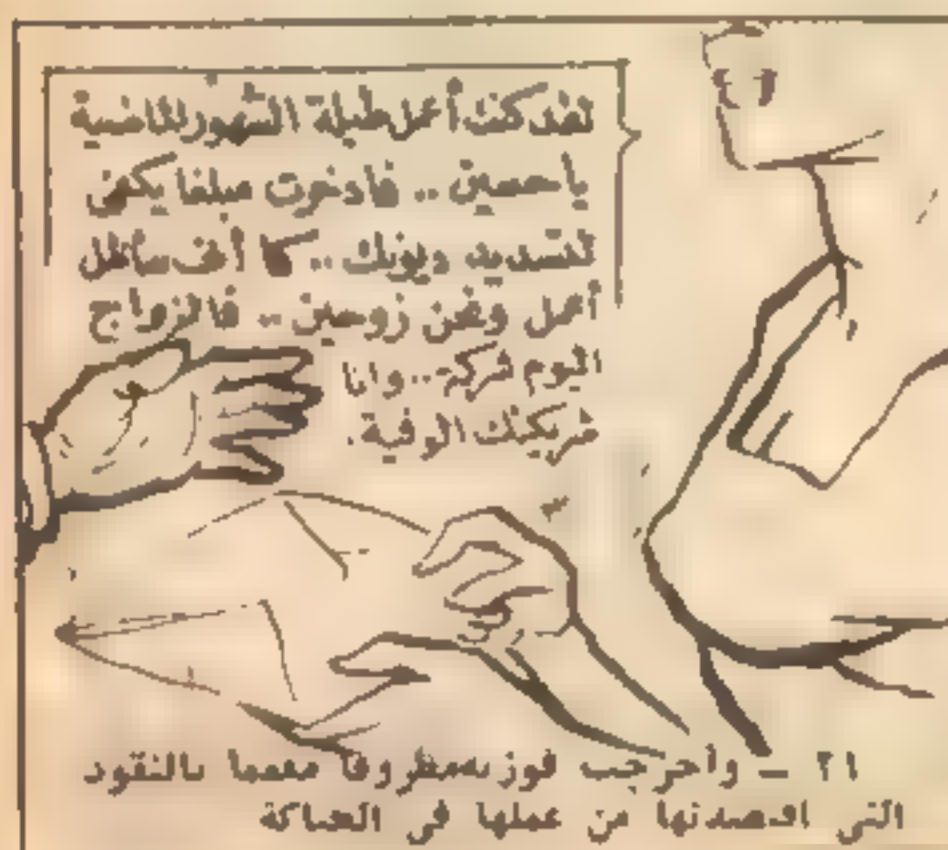 لقد كنت أعمل طيلة الشهور الماضية
يا حسين .. فادخرت مبلغا يكفى
لتسديد ديونك .. كما أننى سأظل
أعمل ونحن زوجين .. فالزواج
اليوم شركة .. وانا
شريكتك الوفية.
٢١ — وأخرجت فوزية مظروفا مفعما بالنقود
التي اقتصدتها من عملها في الحياكة